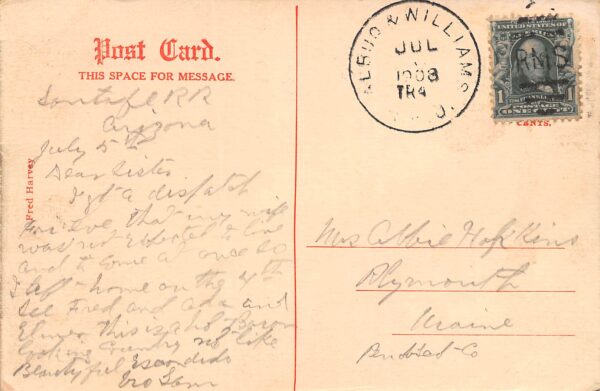 Post Card.
THIS SPACE FOR MESSAGE.
Santafe RR
Arizona
July 5th
Dear Sister
I got a dispatch
that my wife
was not expected to live
and to come at once so
I home on the 4th
See Fred and Ada and
Elmer this is a hot Baron
looking country not like
Beautyful Escondido
Bro Sam
Fred Harvey
ALBUQ & WILLIAMS
JUL
1908
TR4
RMS
1
POSTAGE
ONE CENT
CENTS.
Mrs Abbie Hopkins
Plymouth
Maine
Penobscot Co